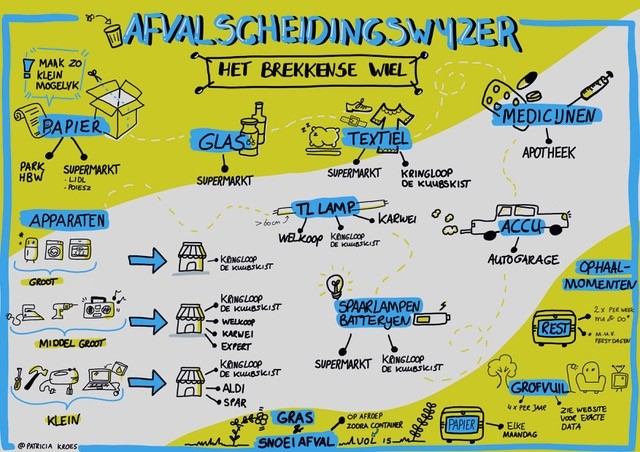 AFVALSCHEIDINGSWYZER
HET BREKKENSE WIEL
MAAK ZO
KLEIN
MOGELYK
PAPIER
PARK
HBW
SUPERMARKT
- LIDL
- POIESZ
GLAS
SUPERMARKT
TEXTIEL
SUPERMARKT
KRINGLOOP
DE KUUBSKIST
MEDICIJNEN
APOTHEEK
TL LAMP
> 60cm
WELKOOP
KRINGLOOP
DE KUUBSKIST
KARWEI
ACCU
AUTOGARAGE
APPARATEN
GROOT
KRINGLOOP
DE KUUBSKIST
MIDDEL GROOT
KRINGLOOP
DE KUUBSKIST
WELKOOP
KARWEI
EXPERT
KLEIN
KRINGLOOP
DE KUUBSKIST
ALDI
SPAR
SPAARLAMPEN
BATTERYEN
SUPERMARKT
KRINGLOOP
DE KUUBSKIST
OPHAAL-
MOMENTEN
REST
2x PER WEEK
ma & Do*
* M.U.V.
FEESTDAGEN
GROFVUIL
4x PER JAAR
ZIE WEBSITE
VOOR EXACTE
DATA
GRAS
&
SNOEI AFVAL
OP AFROEP
ZODRA CONTAINER
VOL IS
PAPIER
ELKE
MAANDAG
@PATRICIA KROES